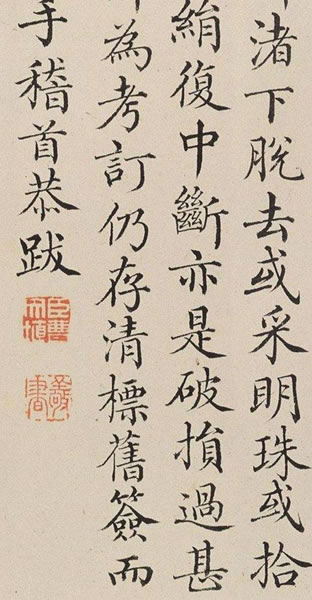 渚下脫去或采明珠或拾
絹復中斷亦是破損過甚
為考訂仍存清標舊簽而
手稽首恭跋
敬書